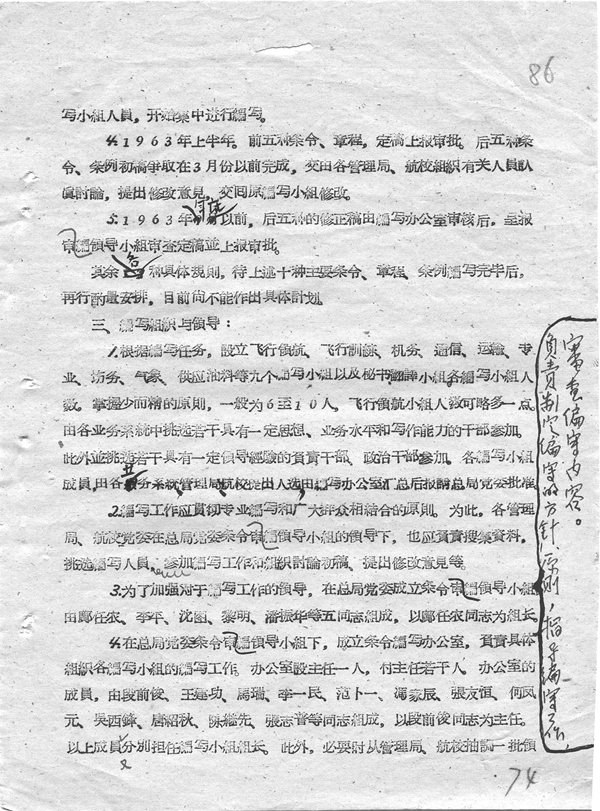 86
写小组人員，开始集中进行编写。
4.1963年上半年。前五种条令、章程，定稿上报审批。后五种条
令、条例初稿争取在3月份以前完成，交由各管理局、航校組织有关人員认
真討論，提出修改意見，交囘原编写小组修改。
5.1963年 以前，后五种的修正稿由编写办公室审核后，呈报
审编領导小組审查定稿並上报审批。
其余各种具体規則，待上述十种主要条令、章程、条例编写完毕后，
再行酌量安排，目前尚不能作出具体計划。
三、编写組织与領导：
1.根据编写任务，設立飞行領航、飞行訓練、机务、通信、运輸、专
业、坊务、气象、供应油料等九个编写小组以及秘书 小組各编写小組人
数，掌握少而精的原則，一般为6至10人，飞行領航小組人数可略多一点
由各业务系統中挑选若干具有一定思想、业务水平和写作能力的干部参加。
此外並挑选若干具有一定領导經驗的負責干部、政治干部参加。各编写小組
成員，由各业务系統、管理局、航校提出人选由编写办公室汇总后报請总局党委批准
2.编写工作应貫切专业编写和广大群众相結合的原則。为此，各管理
局、航校党委在总局党委条令审编領导小組的領导下，也应負責搜集資料，
挑选编写人員，参加编写工作和組织討論初稿，提出修改意見等。
3.为了加强对于编写工作的領导，在总局党委成立条令审编領导小組
由鄺任农、李平、沈图、黎明、潘振华等五同志組成，以鄺任农同志为組长。
4.在总局党委条令审编領导小組下，成立条令编写办公室，負責具体
組织各编写小組的编写工作。办公室設主任一人，付主任若干人。办公室的
成員，由段前俊、王延功、馬瑞、李一民、范卜一、馮家辰、張友恒、何凤
元、吳西鋒、唐紹秋、陈繼先、張志普等同志組成，以段前俊同志为主任。
以上成員分別担任编写小組組长。此外，必要时从管理局、航校抽調一批領
負責制定编写的方針，原則，指导编写工作，
審查编写内容。
74